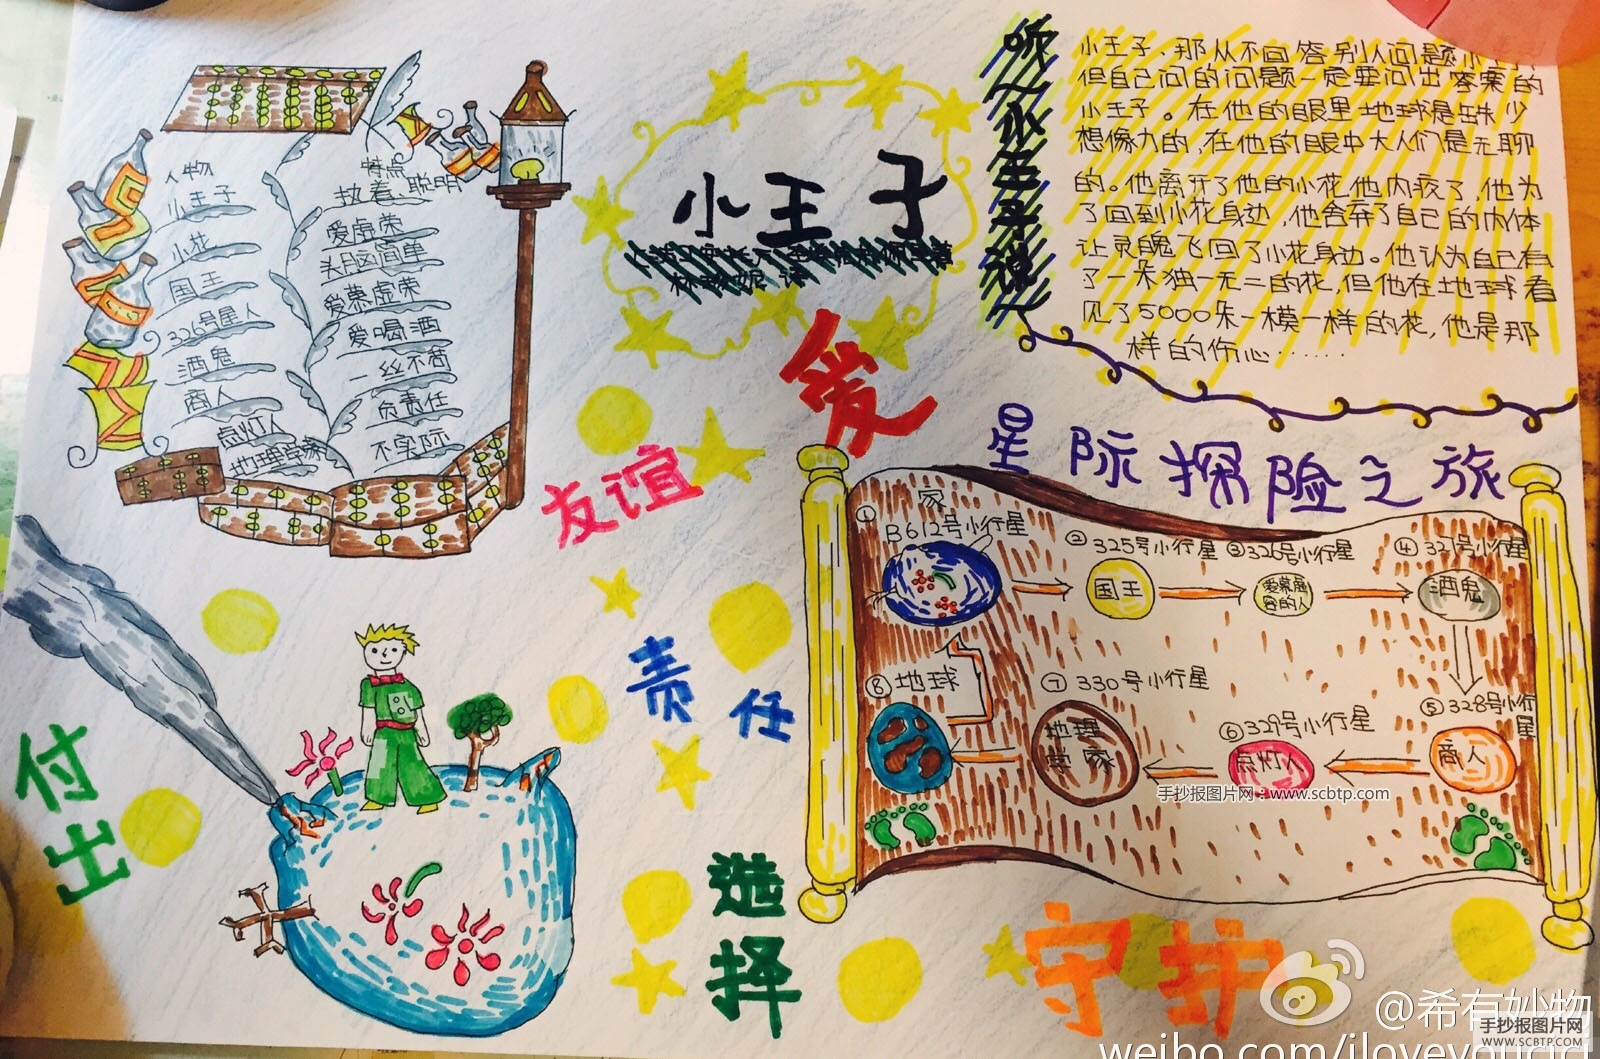 人物
小王子
小花
国王
326号星人
酒鬼
商人
点灯人
地理学家
特点
执着 聪明
爱虚荣
头脑简单
爱慕虚荣
爱喝酒
一丝不苟
负责任
不实际
小王子
小王子，那从不回答别人问题
但自己问的问题一定要问出答案的
小王子。在他的眼里地球是缺少
想像力的，在他的眼中大人们是无聊
的。他离开了他的小花他内疚了，他为
了回到小花身边，他舍弃了自己的肉体
让灵魄飞回了小花身边。他认为自己有
了一朵独一无二的花，但他在地球看
见了5000朵一模一样的花，他是那
样的伤心……
爱
友谊
责任
付出
选择
守护
星际探险之旅
家
① B612号小行星
② 325号小行星
国王
③ 326号小行星
爱慕虚
容的人
④ 327号小行星
酒鬼
⑤ 328号小行
星
商人
⑥ 329号小行星
点灯人
⑦ 330号小行星
地理
学家
⑧ 地球
手抄报图片网：www.scbtp.com
@希有妙物
手抄报图片网
www.SCBTP.COM